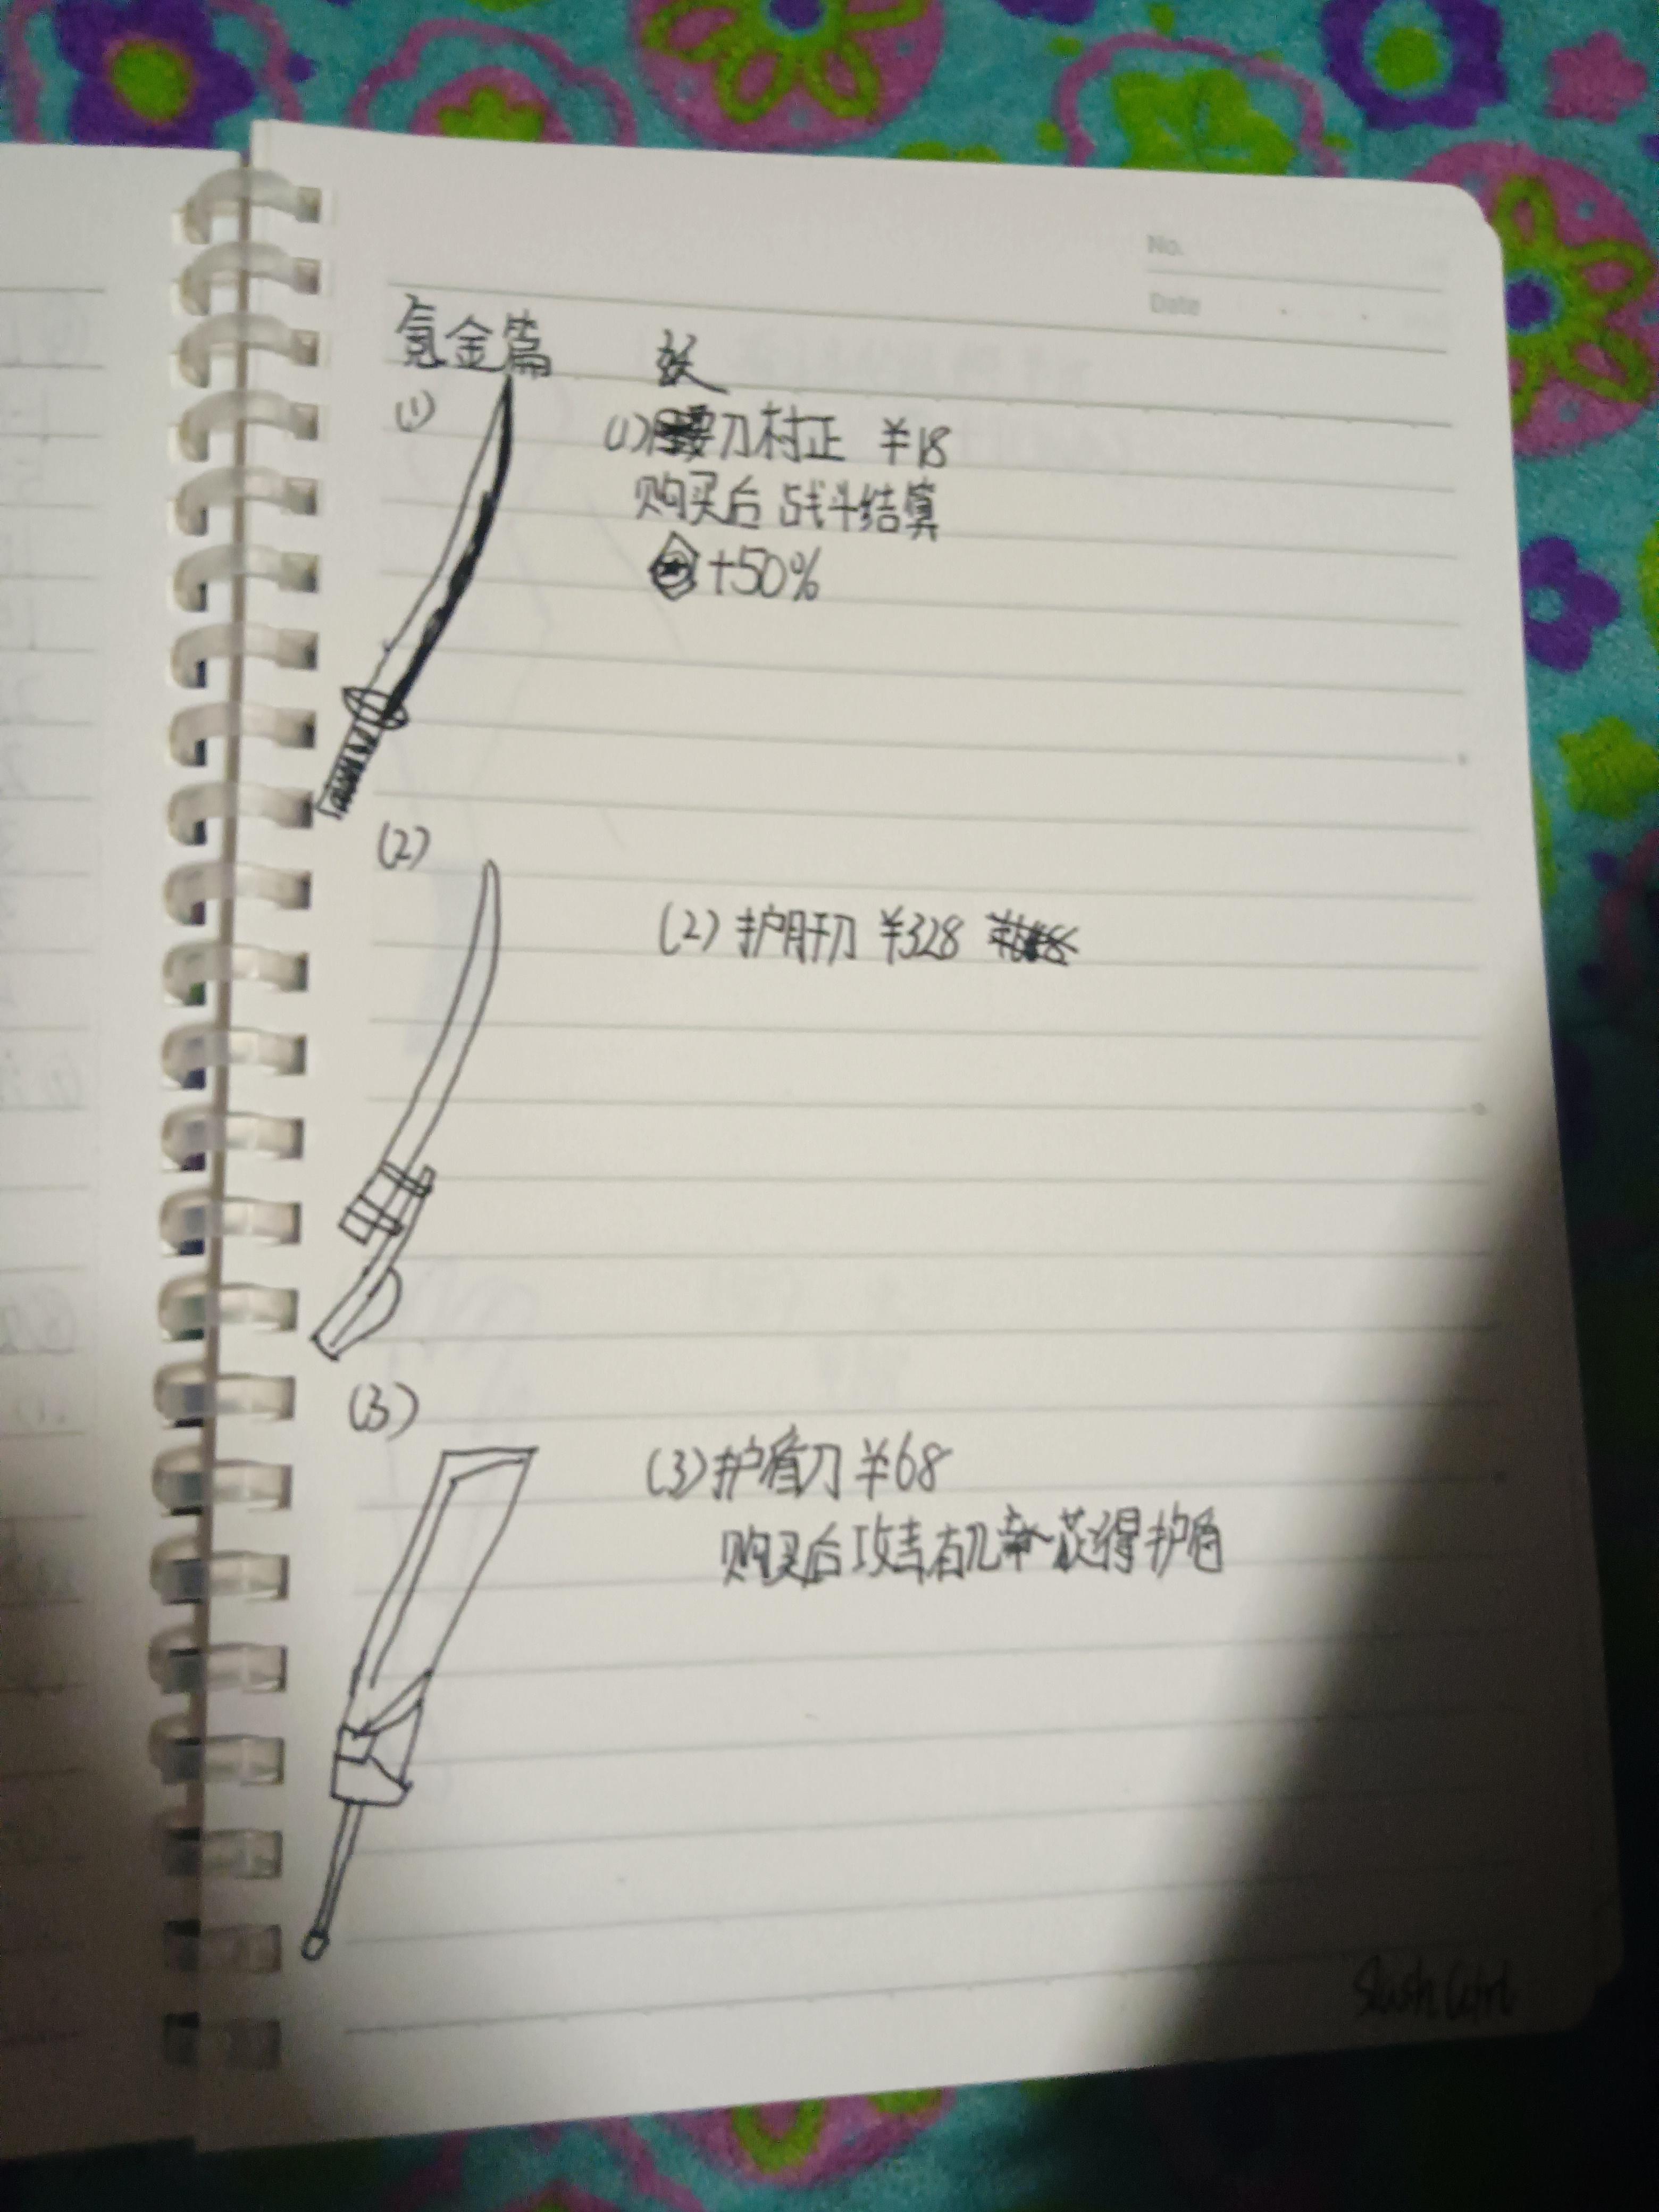 No.
Date
氪金篇
妖
(1)
(1)刀村正 ¥18
购买后 战斗结算
+50%
(2)
(2)护肝刀 ¥328
(3)
(3)护盾刀 ¥68
购买后攻击有几率获得护盾